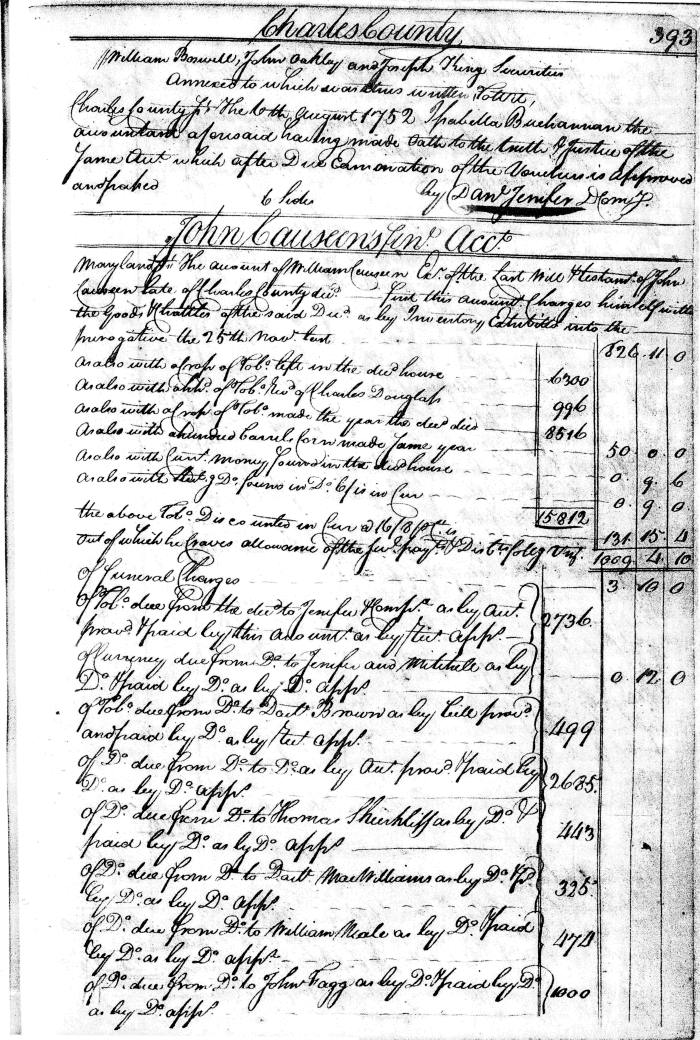 Charles County 393
William Boswell, John Oakley and Joseph King Securities
Annexed to which was thus written Towit,
Charles County Ss The 6th August 1752 Isabella Buchannan the
accountant aforesaid having made Oath to the truth & Justice of the
Same Acct. which after Due Examonation of the Vouchers is approved
and passed 6 Sides by Danl. Jenifer D Comy.
John Causeen's Invy. Acct.
Maryland Ss The account of William Causeen Exr. of the Last Will & testamt. of John
Causeen Late of Charles County decd. First this accountt. Charges himself with
the Goods & Chattles of the said Decd. as by Inventory Exhibited into the
prerogative the 25th Novr. last 826 11 0
as also with a Crop of Tobo. left in the decd. house 6300
as also with a hhd. of Tobo. Recd. of Charles Douglass 996
as also with a Crop of Tobo. made the year the decd. died 8516
as also with a hundred barrels Corn made Same year 50 0 0
as also with Curt. money found in the decd. house 0 9 6
as also with Do. found in Do. is in Cur 0 9 0
the above Tobo. Discounted in Cur @ 16/8 pct. is 15812 131 15 4
out of which he Craves allowance of the paymts. & Vizt. 1009 4 10
of Funeral Charges 3 10 0
of Tobo. due from the decd. to Jenifer & Compy. as by Acct.
provd. & paid by this Accountt. as by rect. appr. 2736
of Currency due from Do. to Jenifer and Mitchell as by
Do. & paid by Do. as by Do. appr. 0 12 0
of Tobo. due from Do. to Doctr. Brown as by bill provd.
and paid by Do. as by rect. appr. 499
of Do. due from Do. to Do. as by Acct. provd. & paid by
Do. as by Do. appr. 2685
of Do. due from Do. to Thomas Shierkliff as by Do. &
paid by Do. as by Do. appr. 443
of Do. due from Do. to Doctr. MacWilliams as by Do. & pd.
by Do. as by Do. appr. 325
of Do. due from Do. to William Neale as by Do. & paid
by Do. as by Do. appr. 474
of Do. due from Do. to John Fagg as by Do. & paid by Do.
as by Do. appr. 1000